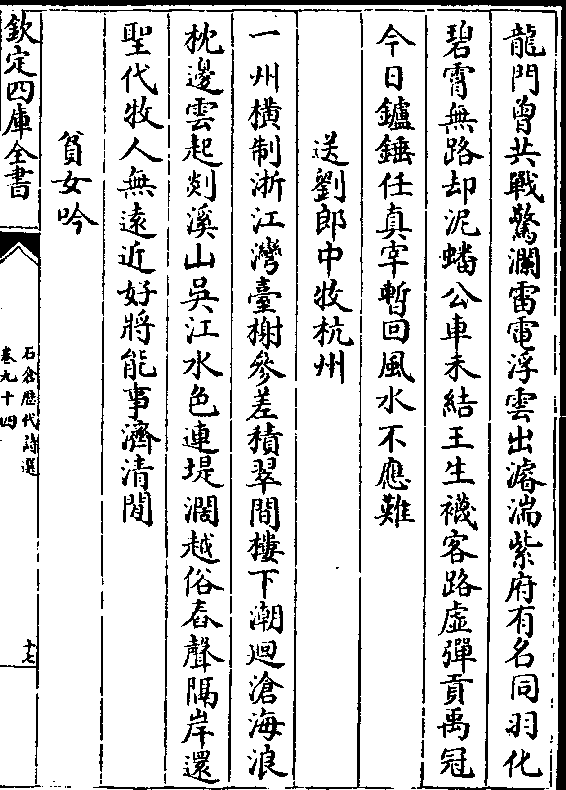 龍門曾共戰驚瀾雷電浮雲出濬湍紫府有名同羽化
碧霄無路却泥蟠公車未結王生襪客路虛彈貢禹冠
今日鑪錘任真宰暫回風水不應難
送劉郎中牧杭州
一州橫制浙江灣臺榭參差積翠間樓下潮迴滄海浪
枕邊雲起剡溪山吳江水色連堤濶越俗舂聲隔岸還
聖代牧人無遠近好將能事濟清閒
貧女吟
欽定四庫全書
石倉歷代詩選
卷九十四
十七